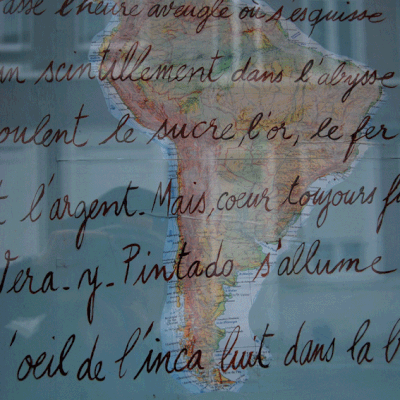 l'heure aveugle où s'esquisse
un scintillement dans l'abysse
roulent le sucre, l'or, le fer
t l'argent. Mais, coeur toujours
Vera-y-Pintado s'allume
l'oeil de l'inca luit dans la